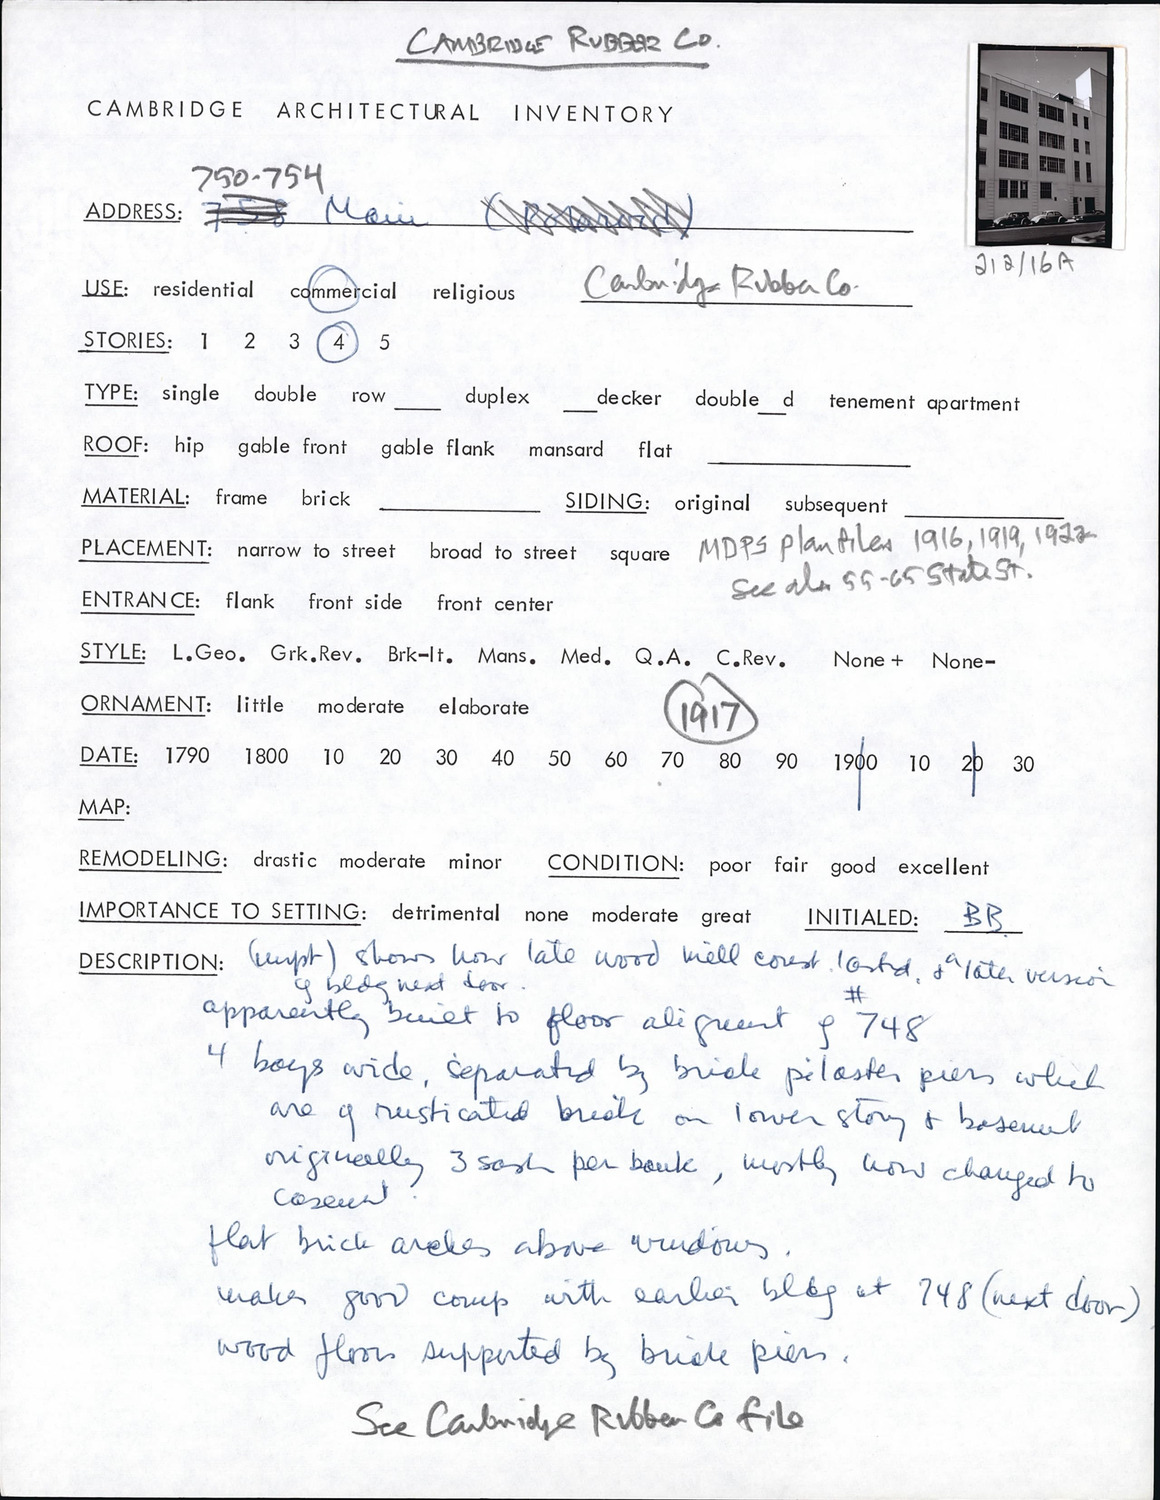 CAMBRIDGE RUBBER CO.
CAMBRIDGE ARCHITECTURAL INVENTORY
750-754
ADDRESS: 758 Main (Polaroid)
212/16A
USE: residential commercial religious Cambridge Rubber Co.
STORIES: 1 2 3 4 5
TYPE: single double row ___ duplex ___decker double__d tenement apartment
ROOF: hip gable front gable flank mansard flat
MATERIAL: frame brick SIDING: original subsequent
PLACEMENT: narrow to street broad to street square MDPS plan files 1916, 1919, 1922
See also 55-65 State St.
ENTRANCE: flank front side front center
STYLE: L.Geo. Grk.Rev. Brk-It. Mans. Med. Q.A. C.Rev. None + None-
ORNAMENT: little moderate elaborate
1917
DATE: 1790 1800 10 20 30 40 50 60 70 80 90 1900 10 20 30
MAP:
REMODELING: drastic moderate minor CONDITION: poor fair good excellent
IMPORTANCE TO SETTING: detrimental none moderate great INITIALED: BB
DESCRIPTION: (impt) shows how late wood mill const. lasted, & a later version
of bldg next door.
apparently built to floor alignment of # 748
4 bays wide, separated by brick pilaster piers which
are of rusticated brick on lower story & basement
originally 3 sash per bank, mostly now changed to
casement.
flat brick arches above windows.
makes good comp with earlier bldg at 748 (next door)
wood floors supported by brick piers.
See Cambridge Rubber Co file